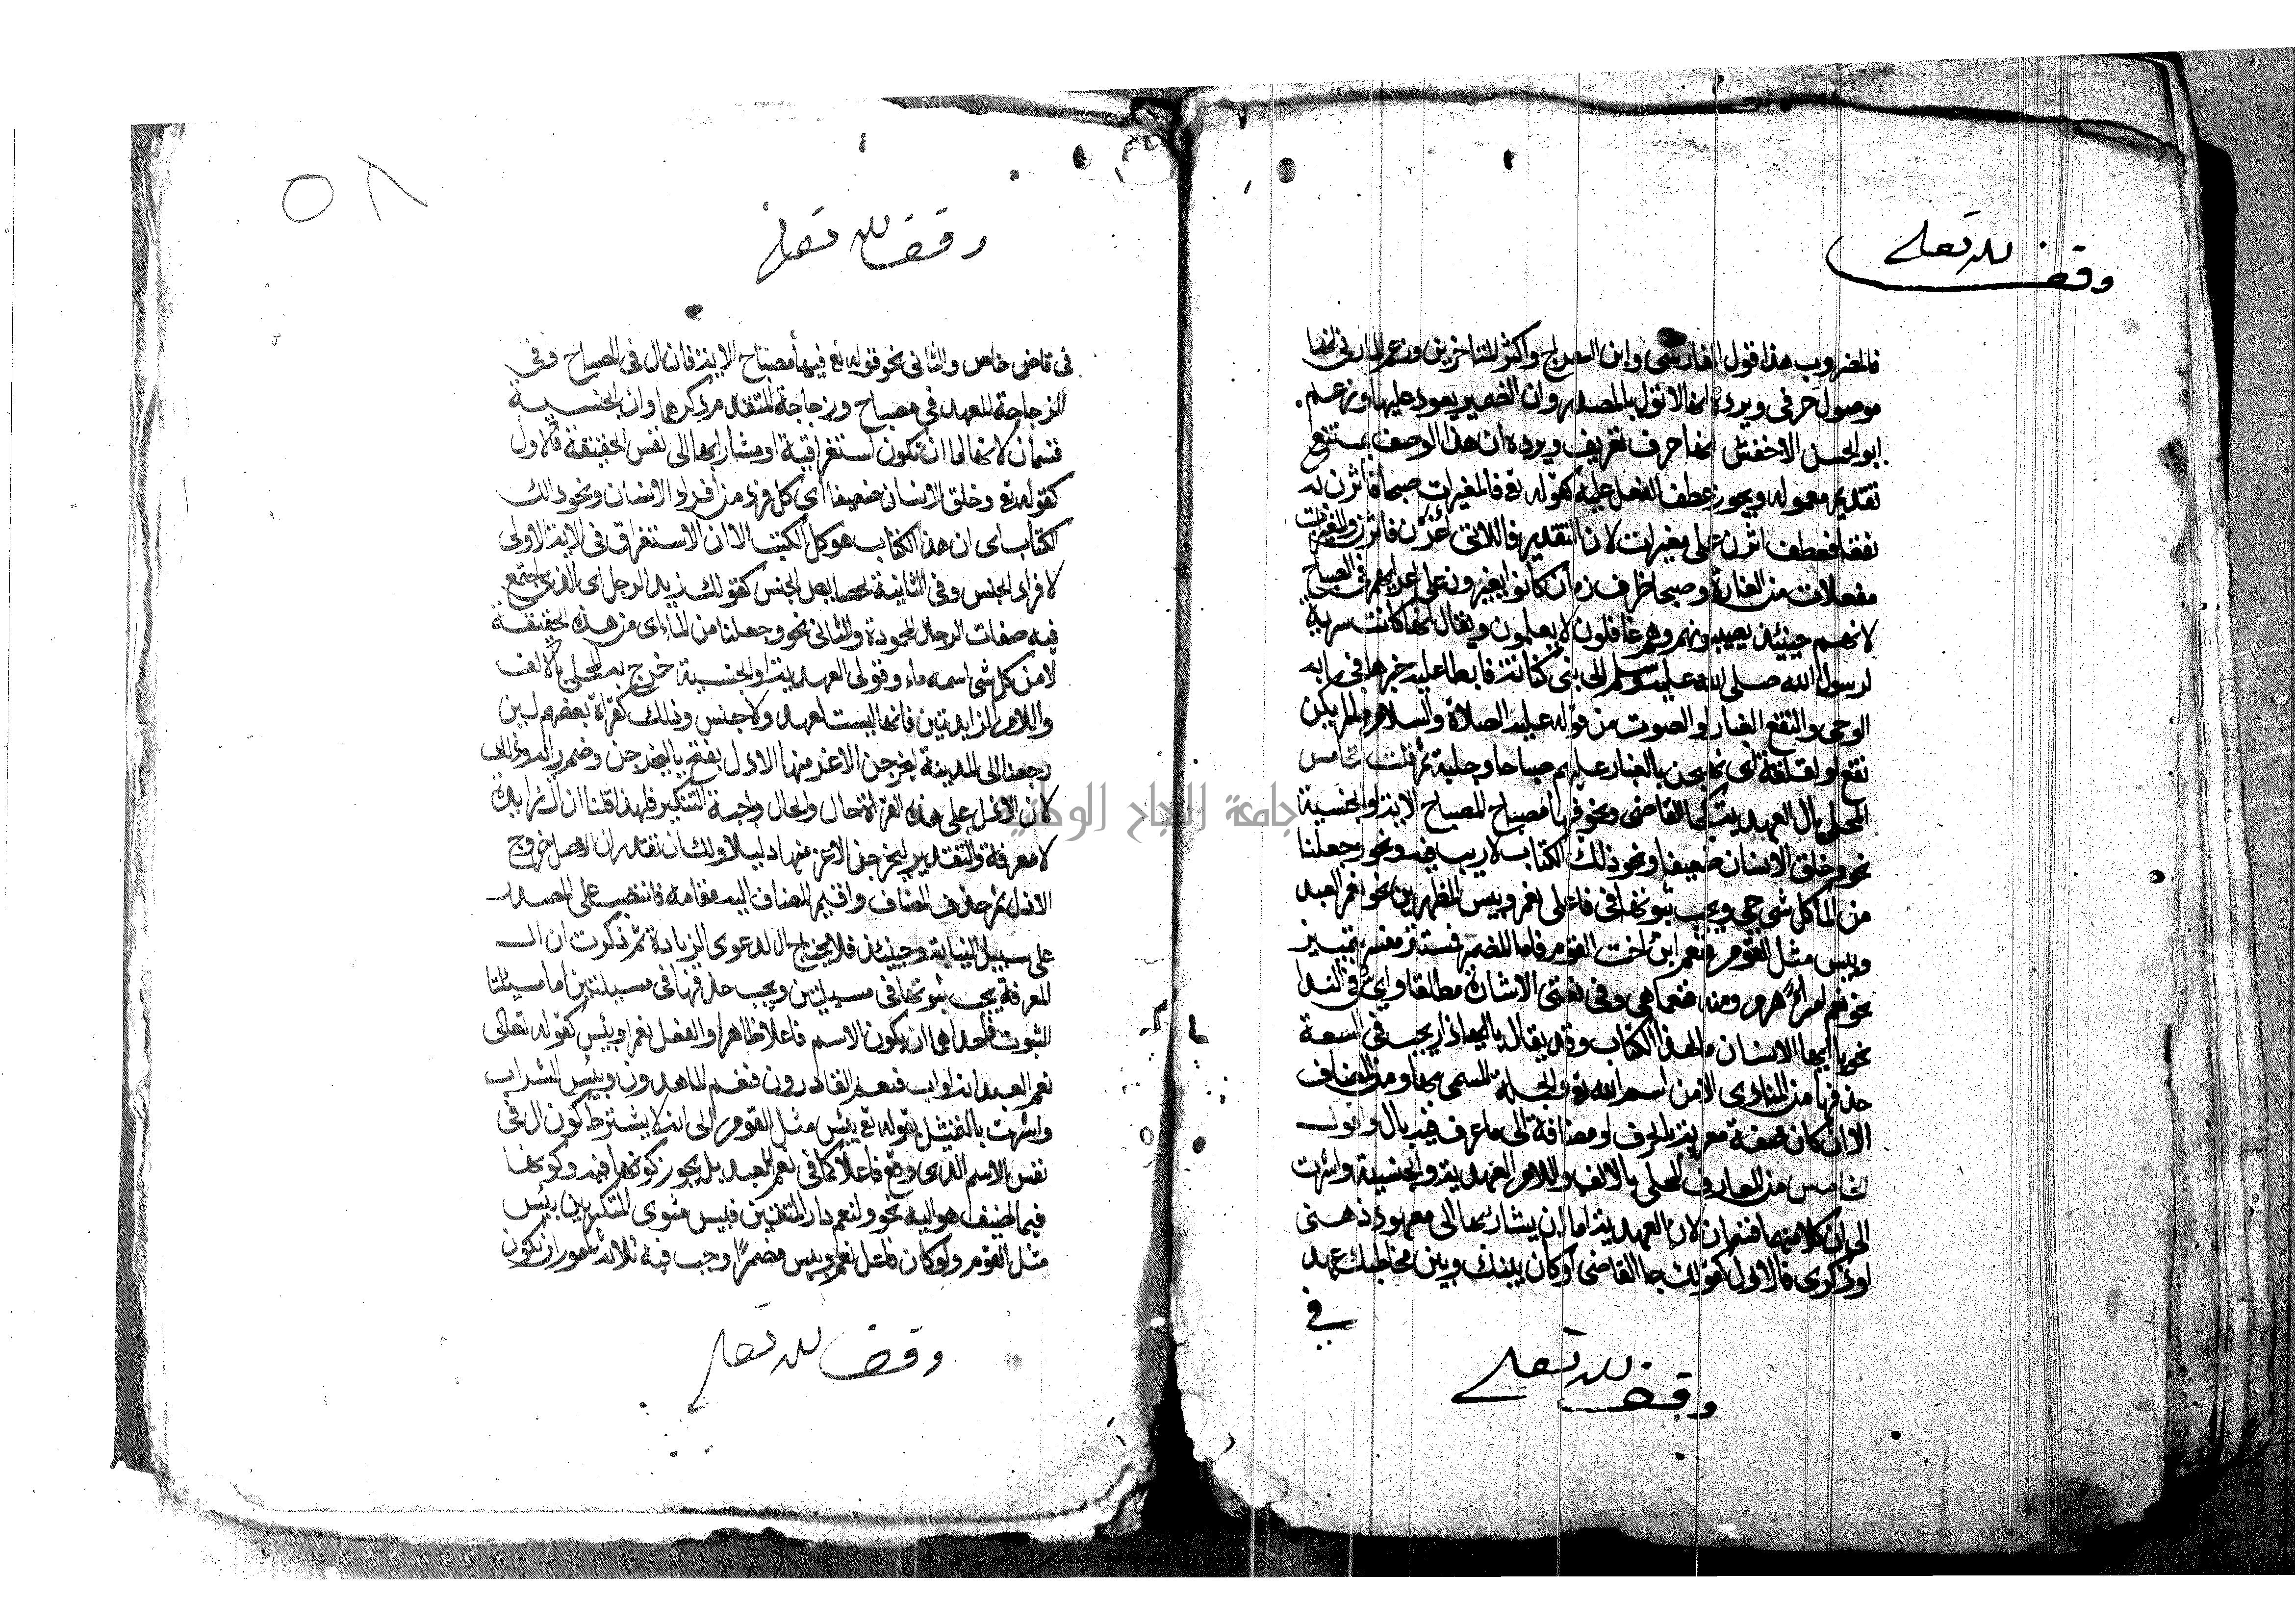 وقف لله تعالى
فالمضروب هذا قول الفارسي وابن السراج واكثر المتاخرين وزعم المازني انها
موصول حرفي ويرده انها لا تؤل بالمصدر وان الضمير يعود عليها وزعم
ابو الحسن الاخفش انها حرف تعريف ويرده ان هذا الوصف يمتنع
تقديم معموله ويجوز عطف الفعل عليه كقوله تع فالمغيرات صبحا فاثرن به
نقعا فعطف اثرن على مغيرات لان التقدير فاللاتي اغرن فاثرن والمغيرات
مفعلات من الغارة وصبحا ظرف زمان كانوا يغيرون على اعدايهم في الصباح
لانهم حينئذ يصيبونهم وهم غافلون لا يعلمون ويقال انها كانت سرية
لرسول الله صلى الله عليه وسلم الى بني كنانة فابطا عليه خبرها فجاء به
الوحي والنقع الغبار والصوت من قوله عليه الصلاة والسلام ما لم يكن
نقع او لقلقة اي فهيجن بالغبار عليهم صباحا وجلبة ثم قلت الخامس
المحلى بال العهدية كجا القاضي ونحو فيها مصباح المصباح الاية والجنسية
نحو وخلق الانسان ضعيفا ونحو ذلك الكتاب لا ريب فيه ونحو وجعلنا
من الما كل شي حي ويجب ثبوتها في فاعلى نعم وبيس المظهرين نحو نعم العبد
وبيس مثل القوم فنعم ابن اخت القوم فاما المضمر فمستتر مفسر بتمييز
نحو نعم امرأ هرم ومنه فنعما هي وفي نعتي الاشارة مطلقا واي في الندا
نحو يا ايها الانسان مالهذا الكتاب وقد يقال يا ايهاذا ويجب في السعة
حذفها من المنادى الا من اسم الله تع والجملة المسمى بها ومن المضاف
الا ان كان صفة معربة بالحرف او مضافة الى ما عرف فيه بال واقول
الخامس من المعارف المحلى بالالف واللام العهدية والجنسية واشرت
الى ان كلا منهما قسمان لان العهدية اما ان يشار بها الى معهود ذهني
او ذكري فالاول كقولك جا القاضي اذا كان بينك وبين مخاطبك عهد
في
وقف لله تعالى
٥٨
وقف لله تعالى
في قاض خاص والثاني نحو قوله تع فيها مصباح الاية فان ال في المصباح وفي
الزجاجة للعهد في مصباح وزجاجة المتقدم ذكرها وان الجنسية
قسمان لانها اما ان تكون استغراقية او مشار بها الى نفس الحقيقة فالاول
كقوله تع وخلق الانسان ضعيفا اى كل فرد من افراد الانسان ونحو ذلك
الكتاب اى ان هذا الكتاب هو كل الكتب الا ان الاستغراق في الاية الاولى
لافراد الجنس وفي الثانية لخصايص الجنس كقولك زيد الرجل اى الذي اجتمع
فيه صفات الرجال المحمودة والثاني نحو وجعلنا من الماء اى من هذه الحقيقة
لا من كل شي اسمه ماء وقولي العهدية او الجنسية خرج به المحلى بالالف
واللام الزايدتين فانها ليست لعهد ولا جنس وذلك كقراة بعضهم لين
رجعنا الى المدينة ليخرجن الاعز منها الاذل بفتح ياء ليخرجن وضم رايه وذلك
لان الاذل على هذه القراة حال والحال واجبة التنكير فلهذا قلنا ان ال زايدة
لا معرفة والتقدير ليخرجن الاعز منها ذليلا ولك ان تقدر ان الاصل خروج
الاذل ثم حذف المضاف واقيم المضاف اليه مقامه فانتصب على المصدر
على سبيل النيابة وحينئذ فلا يحتاج الى دعوى الزيادة ثم ذكرت ان ال
المعرفة يجب ثبوتها في مسيلتين ويجب حذفها في مسيلتين اما مسيلتا
الثبوت فاحداهما ان يكون الاسم فاعلا ظاهرا والفعل نعم او بئس كقوله تعالى
نعم العبد انه اواب فنعم القادرون فنعم الماهدون وبيس الشراب
واشرت بالتمثيل بقوله تع بيس مثل القوم الى انه لا يشترط كون ال في
نفس الاسم الذي وقع فاعلا كما في نعم العبد بل يجوز كونها فيه وكونها
فيما اضيف هو اليه نحو ولنعم دار المتقين فبيس مثوى المتكبرين بيس
مثل القوم ولو كان فاعل نعم وبيس مضمرا وجب فيه ثلاثة امور ان يكون
وقف لله تعالى
جامعة النجاح الوطنية